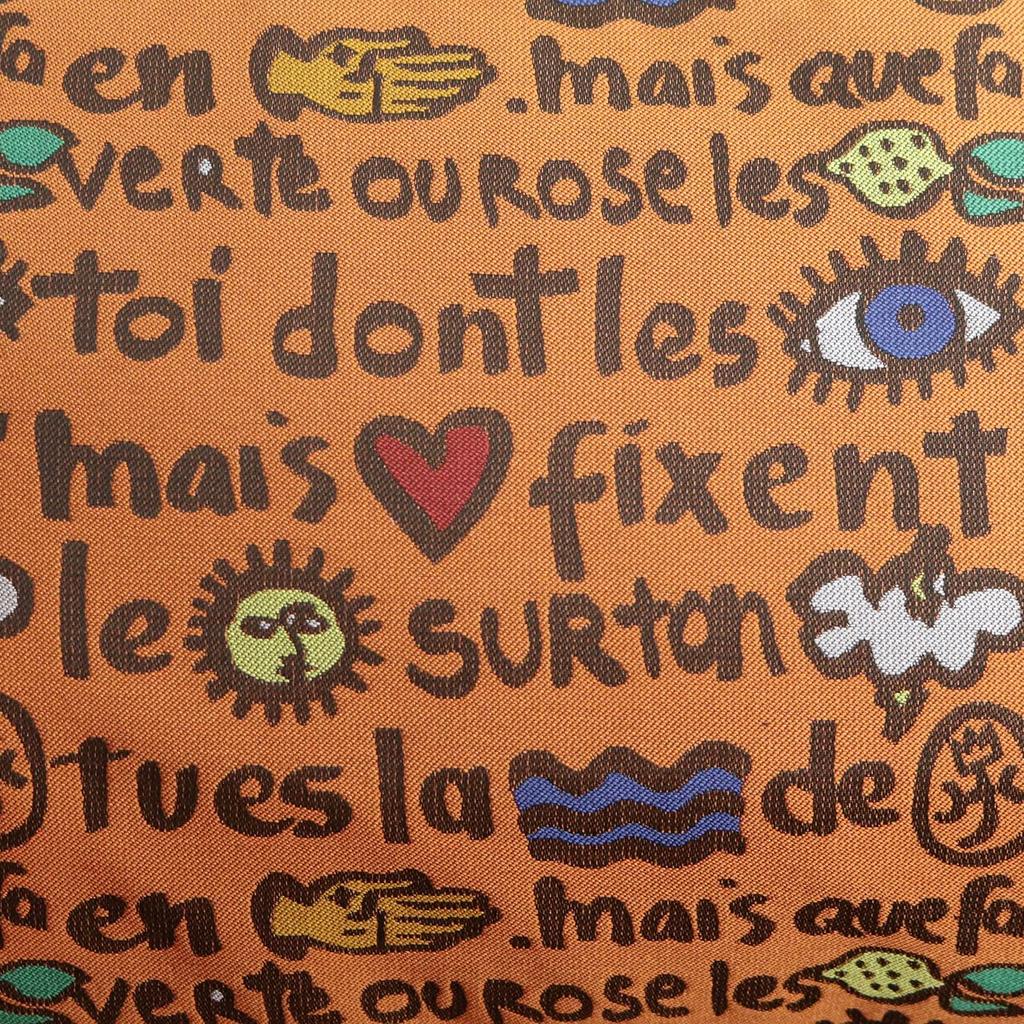 fa en .mais que fa
verte ou rose les
toi dont les
mais fixent
le sur ton
tu es la de
fa en .mais que fa
verte ou rose les